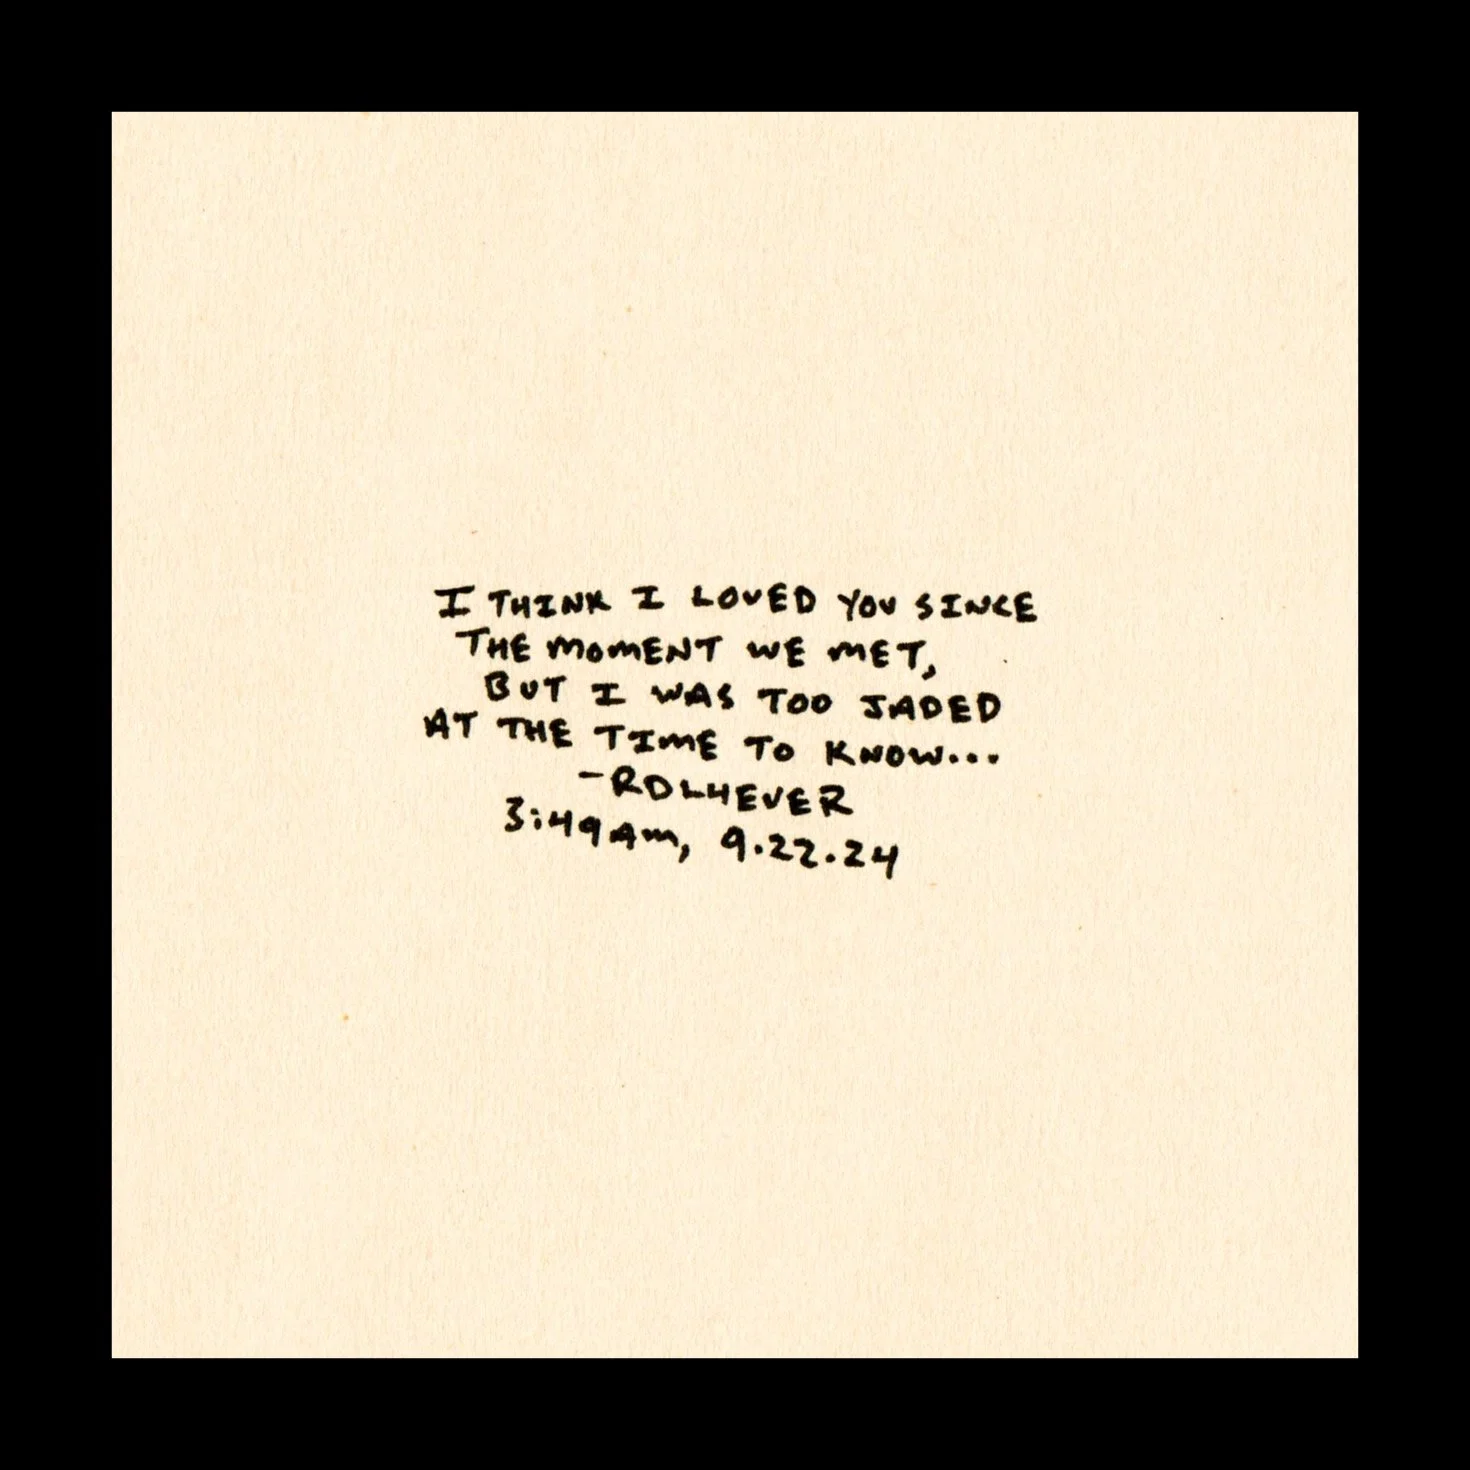 I THINK I LOVED YOU SINCE
THE MOMENT WE MET,
BUT I WAS TOO JADED
AT THE TIME TO KNOW...
-RDL4EVER
3:49AM, 9.22.24